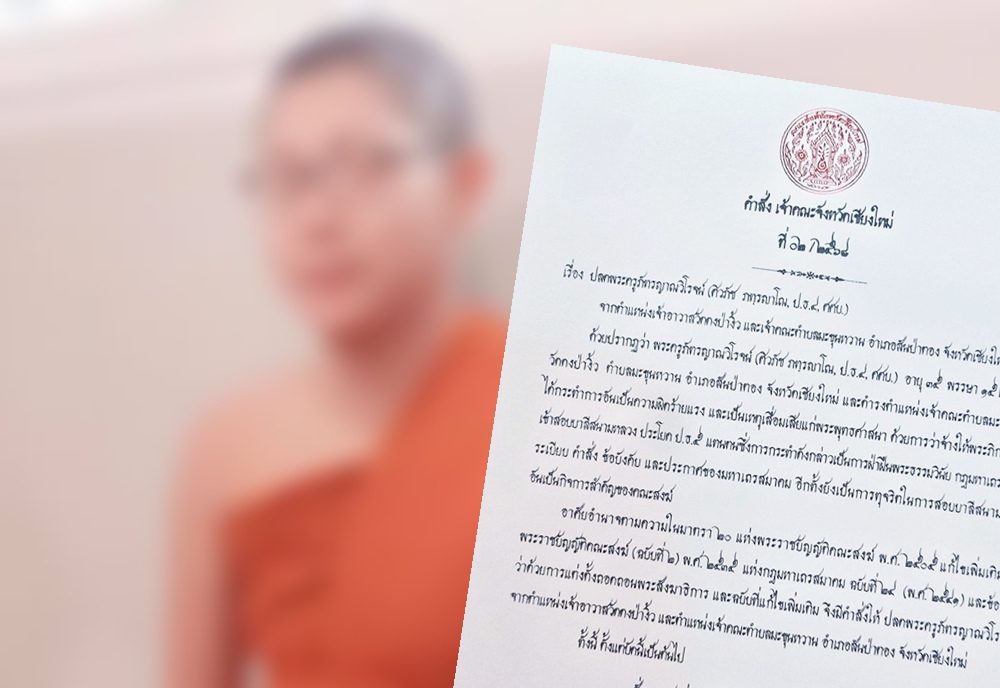 คำสั่ง เจ้าคณะจังหวัดเชียงใหม่
ที่ ๖๒ /๒๕๖๘
เรื่อง ปลดพระครูภัทรญาณวิโรจน์ (ศิวภัช ภทฺรญาโณ, ป.ธ.๔, ศศบ.)
จากตำแหน่งเจ้าอาวาสวัดดงป่างิ้ว และเจ้าคณะตำบลมะขุนหวาน อำเภอสันป่าตอง จังหวัดเชียงให
ด้วยปรากฏว่า พระครูภัทรญาณวิโรจน์ (ศิวภัช ภทฺรญาโณ, ป.ธ.๔, ศศบ.) อายุ ๓๕ พรรษา ๑๕
วัดดงป่างิ้ว ตำบลมะขุนหวาน อำเภอสันป่าตอง จังหวัดเชียงใหม่ และดำรงตำแหน่งเจ้าคณะตำบลมะ
ได้กระทำการอันเป็นความผิดร้ายแรง และเป็นเหตุเสื่อมเสียแก่พระพุทธศาสนา ด้วยการว่าจ้างให้พระภิก
เข้าสอบบาลีสนามหลวง ประโยค ป.ธ.๕ แทนตนซึ่งการกระทำดังกล่าวเป็นการฝ่าฝืนพระธรรมวินัย กฎมหาเถร
ระเบียบ คำสั่ง ข้อบังคับ และประกาศของมหาเถรสมาคม อีกทั้งยังเป็นการทุจริตในการสอบบาลีสนาม
อันเป็นกิจการสำคัญของคณะสงฆ์
อาศัยอำนาจตามความในมาตรา ๒๐ แห่งพระราชบัญญัติคณะสงฆ์ พ.ศ. ๒๕๐๕ แก้ไขเพิ่มเติม
พระราชบัญญัติคณะสงฆ์ (ฉบับที่ ๒) พ.ศ. ๒๕๓๕ แห่งกฎมหาเถรสมาคม ฉบับที่ ๒๔ (พ.ศ. ๒๕๔๑) และข้อ
ว่าด้วยการแต่งตั้งถอดถอนพระสังฆาธิการ และฉบับที่แก้ไขเพิ่มเติม จึงมีคำสั่งให้ ปลดพระครูภัทรญาณวิโร
จากตำแหน่งเจ้าอาวาสวัดดงป่างิ้ว และตำแหน่งเจ้าคณะตำบลมะขุนหวาน อำเภอสันป่าตอง จังหวัดเชียงใหม่
ทั้งนี้ ตั้งแต่บัดนี้เป็นต้นไป